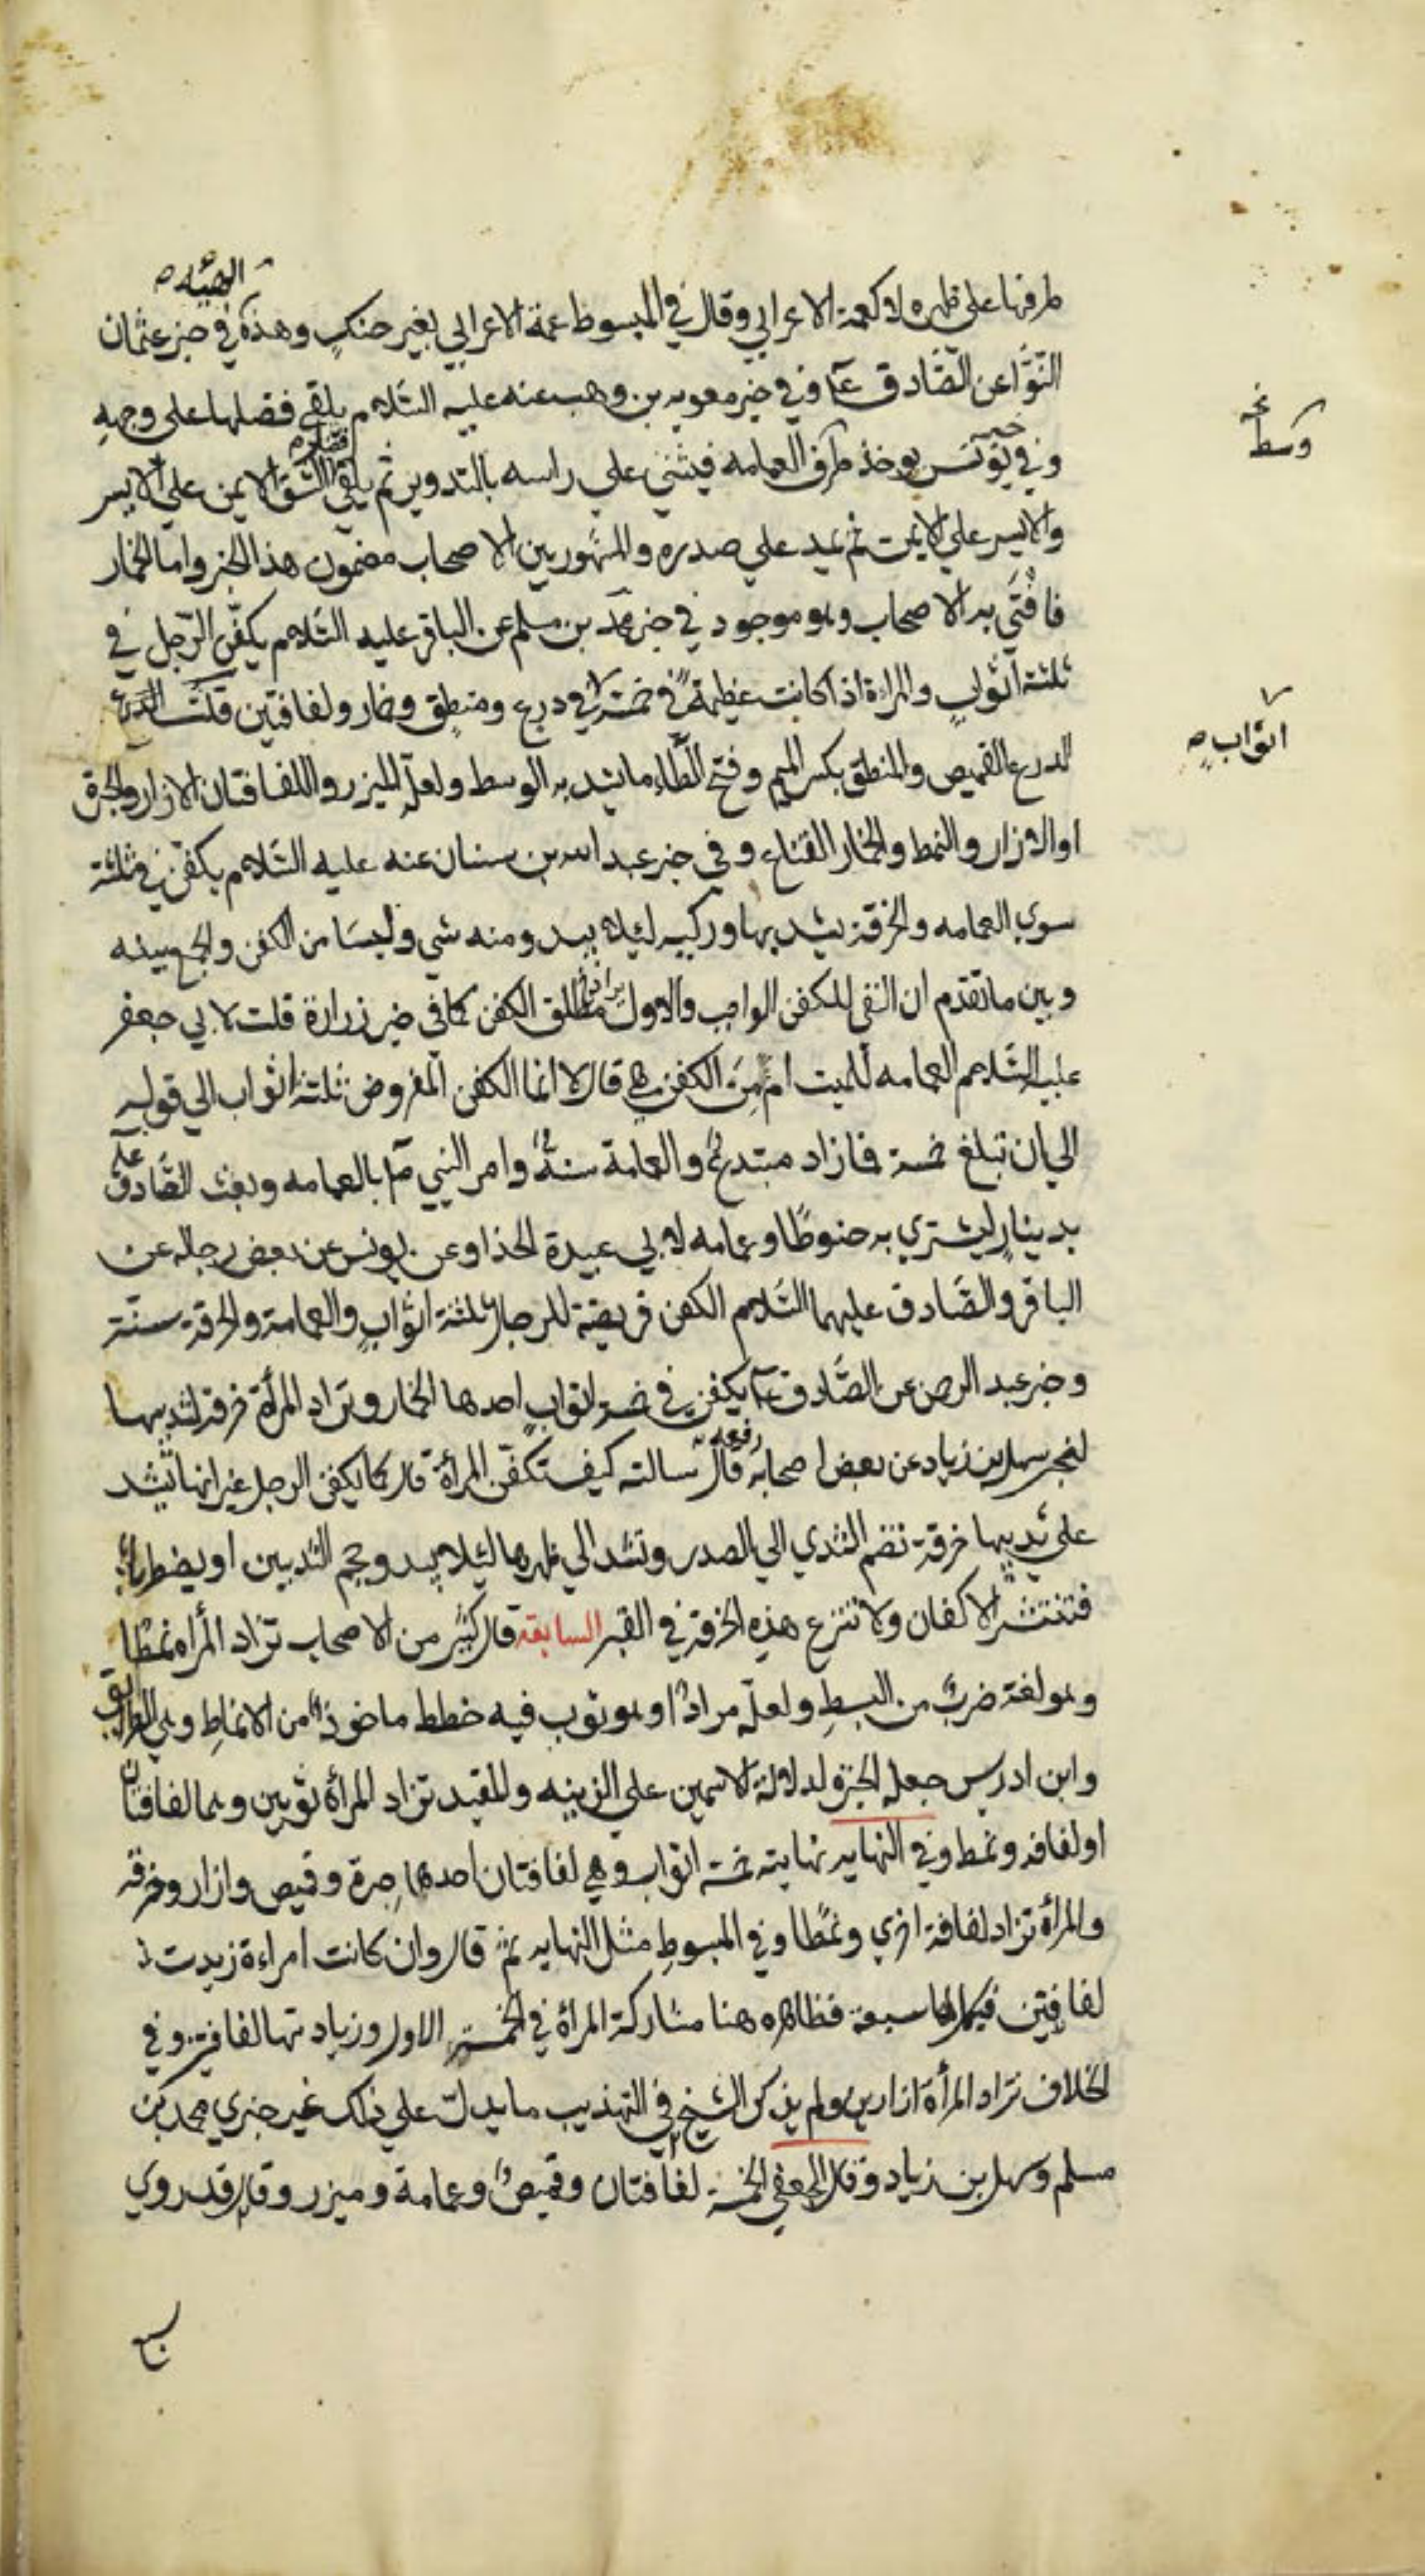 الهيئة صح
طرفها على ظهره لا كعمة الاعرابي وقال في المبسوط عمة الاعرابي بغير حنك وهذه في خبر عثمان
النوّا عن الصّادق ع وفي خبر معويه بن وهب عنه عليه السّلام يلقي فضلها على وجهه
وفي خبر يونس يوخذ طرف العمامه فيثني علي راسه بالتدوير ثم يلقي فضل الشق الايمن علي الايسر
وسط نخ
والايسر علي الايمن ثم يمد علي صدره والمشهور بين الاصحاب مضمون هذا الخبر واما الخمار
فافتي به الاصحاب وهو موجود في خبر محمد بن مسلم عن الباقر عليه السّلام يكفّن الرّجل في
ثلثة اثوابٍ والمراة اذا كانت عظيمةً في خمسة في درع ومنطق وخمار ولفافتين قلت
اثوابٍ صح
الدرع القميص والمنطق بكسر الميم وفتح الطّاء ما يشد به الوسط ولعلّه الميزر واللفافتان الازار والحبرة
او الازار والنمط والخمار القناع وفي خبر عبد الله بن سنان عنه عليه السّلام يكفّن في ثلثة
سوي العمامه والخرقة يشد بها وركيه لئلا يبدو منه شي وليسا من الكفن والجمع بينه
وبين ما تقدم ان النفي للكفن الواجب والاول يراد به مطلق الكفن كما في خبر زرارة قلت لابي جعفر
عليه السّلام العمامه للميت امن الكفن هي قال لا انما الكفن المفروض ثلثة اثواب الي قوله
الي ان تبلغ خمسة فما زاد مبتدعٌ والعمامة سنةٌ وامر النبي ص بالعمامه وبعث الصّادق ع
بدينارٍ ليشتري به حنوطًا وعمامه لابي عبيدة الحذا وعن يونس عن بعض رجاله عن
الباقر والصّادق عليهما السّلام الكفن فريضة للرجال ثلثة اثوابٍ والعمامة والخرقة سنّة
وخبر عبد الرحمن عن الصّادق ع يكفن في خمسة اثوابٍ احدها الخمار وتزاد المرأة خرقة لثدييها
لخبر سهل بن زياد عن بعض اصحابه رفعه قال سالته كيف تكفّن المرأة قال كما يكفن الرجل غير انها تشد
على ثدييها خرقة تضم الثدي الي الصدر وتشد الي ظهرها لئلا يبدو حجم الثديين او يضطربا
فتنتشر الاكفان ولا تنزع هذه الخرقة في القبر السابعة قال كثير من الاصحاب تزاد المرأه نمطا
وهو لغة ضربٌ من البسطِ ولعلّه مرادٌ او هو ثوب فيه خطط ماخوذٌ من الانماطِ وهي الطرايق
وابن ادريس جعله الحبرة لدلالة الاسمين على الزينه والمفيد تزاد المرأة ثوبين وهما لفافتان
او لفافه ونمط وفي النهايه نهايته خمسة اثواب وهي لفافتان احدهما حبرة وقميص وازار وخرقه
والمرأة تزاد لفافة اخري ونمطًا وفي المبسوطِ مثل النهايه ثم قال وان كانت امراءة زيدت
لفافتين فيكمل لها سبعة فظاهره هنا مشاركة المرأة في الخمسة الاول وزيادتها لفافتين وفي
الخلاف تزاد المرأة ازارين ولم يذكر الشيخ في التهذيب ما يدلّ علي ذلك غير خبري محمد بن
مسلم وسهل بن زياد وقال الجعفي الخمسة لفافتان وقميصٌ وعمامة وميزر وقال وقد روي
سبع